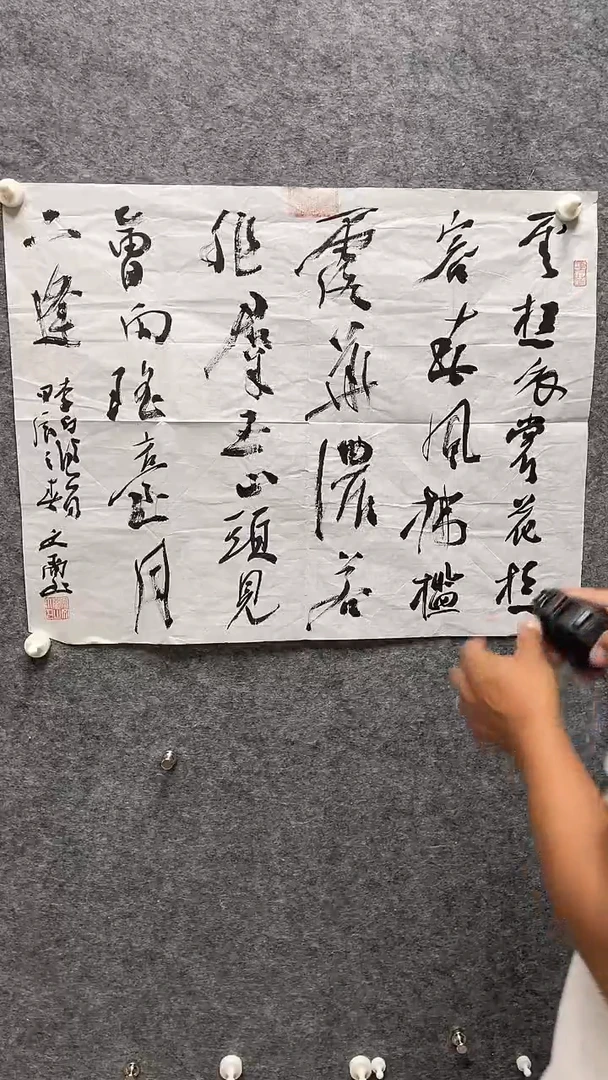 雲想衣裳花想
容春風拂檻
露華濃若
非群玉山頭見
會向瑶臺月
下逢
李白詩
甲辰之春 文